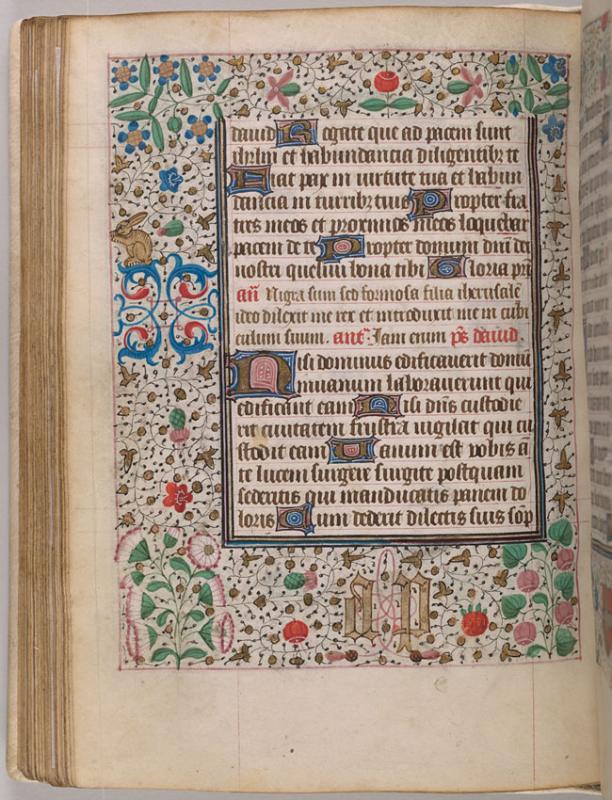 dauid Rogate que ad pacem sunt
ihrlm et habundancia diligentibz te
Fiat pax in uirtute tua et habun
dancia in turribz tuis Propter fra
tres meos et proximos meos loquebar
pacem de te Propter domum dni dei
nostri quesiui bona tibi Gloria pri
añ Nigra sum sed formosa filia iherusale
ideo dilexit me rex et introduxit me in cubi
culum suum. ant. Iam enim ps dauid.
Nisi dominus edificauerit domu
in uanum laborauerunt qui
edificant eam Nisi dns custodie
rit ciuitatem frustra uigilat qui cu
stodit eam Uanum est vobis a
te lucem surgere surgite postquam
sederitis qui manducatis panem do
loris Cum dederit dilectis suis sop